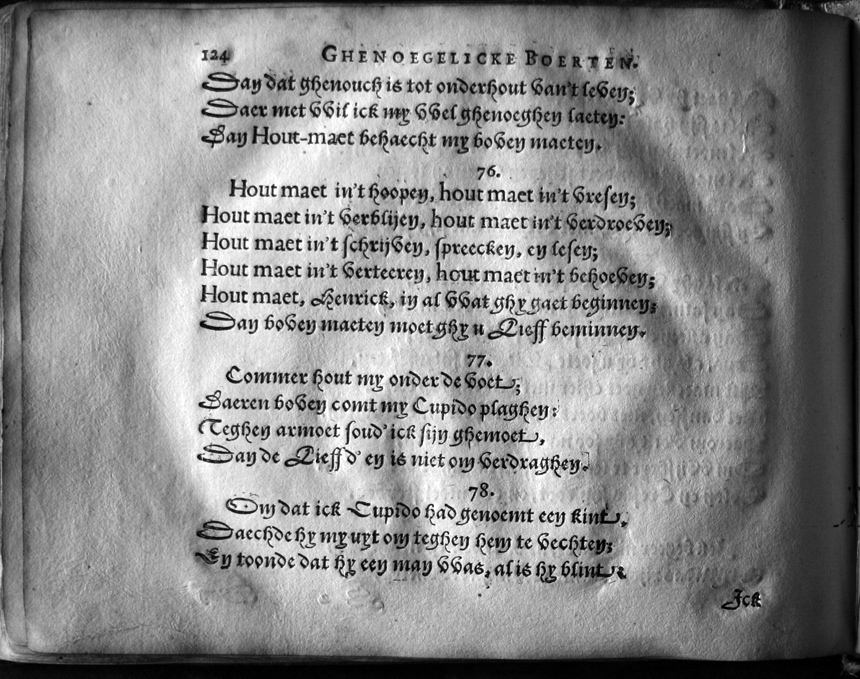 124 GHENOEGELICKE BOERTEN.
Dan dat ghenouch is tot onderhout van't leven;
Daer met wil ick my wel ghenoeghen laeten:
Dan Hout-maet behaecht my boven maeten.
76.
Hout maet in't hoopen, hout maet in't vresen;
Hout maet in't verblijen, hout maet in't verdroeven;
Hout maet in't schrijven, spreecken, en lesen;
Hout maet in't verteeren, hout maet in't behoeven;
Hout maet, Henrick, in al wat ghy gaet beginnen;
Dan boven maeten moet ghy u Lieff beminnen.
77.
Commer hout my onder de voet;
Daeren boven comt my Cupido plaghen:
Teghen armoet soud' ick sijn ghemoet,
Dan de Lieffd' en is niet om verdraghen.
78.
Om dat ick Cupido had genoemt een kint,
Daechde hy my uyt om teghen hem te vechten;
En toonde dat hy een man was, al is hy blint:
Ick